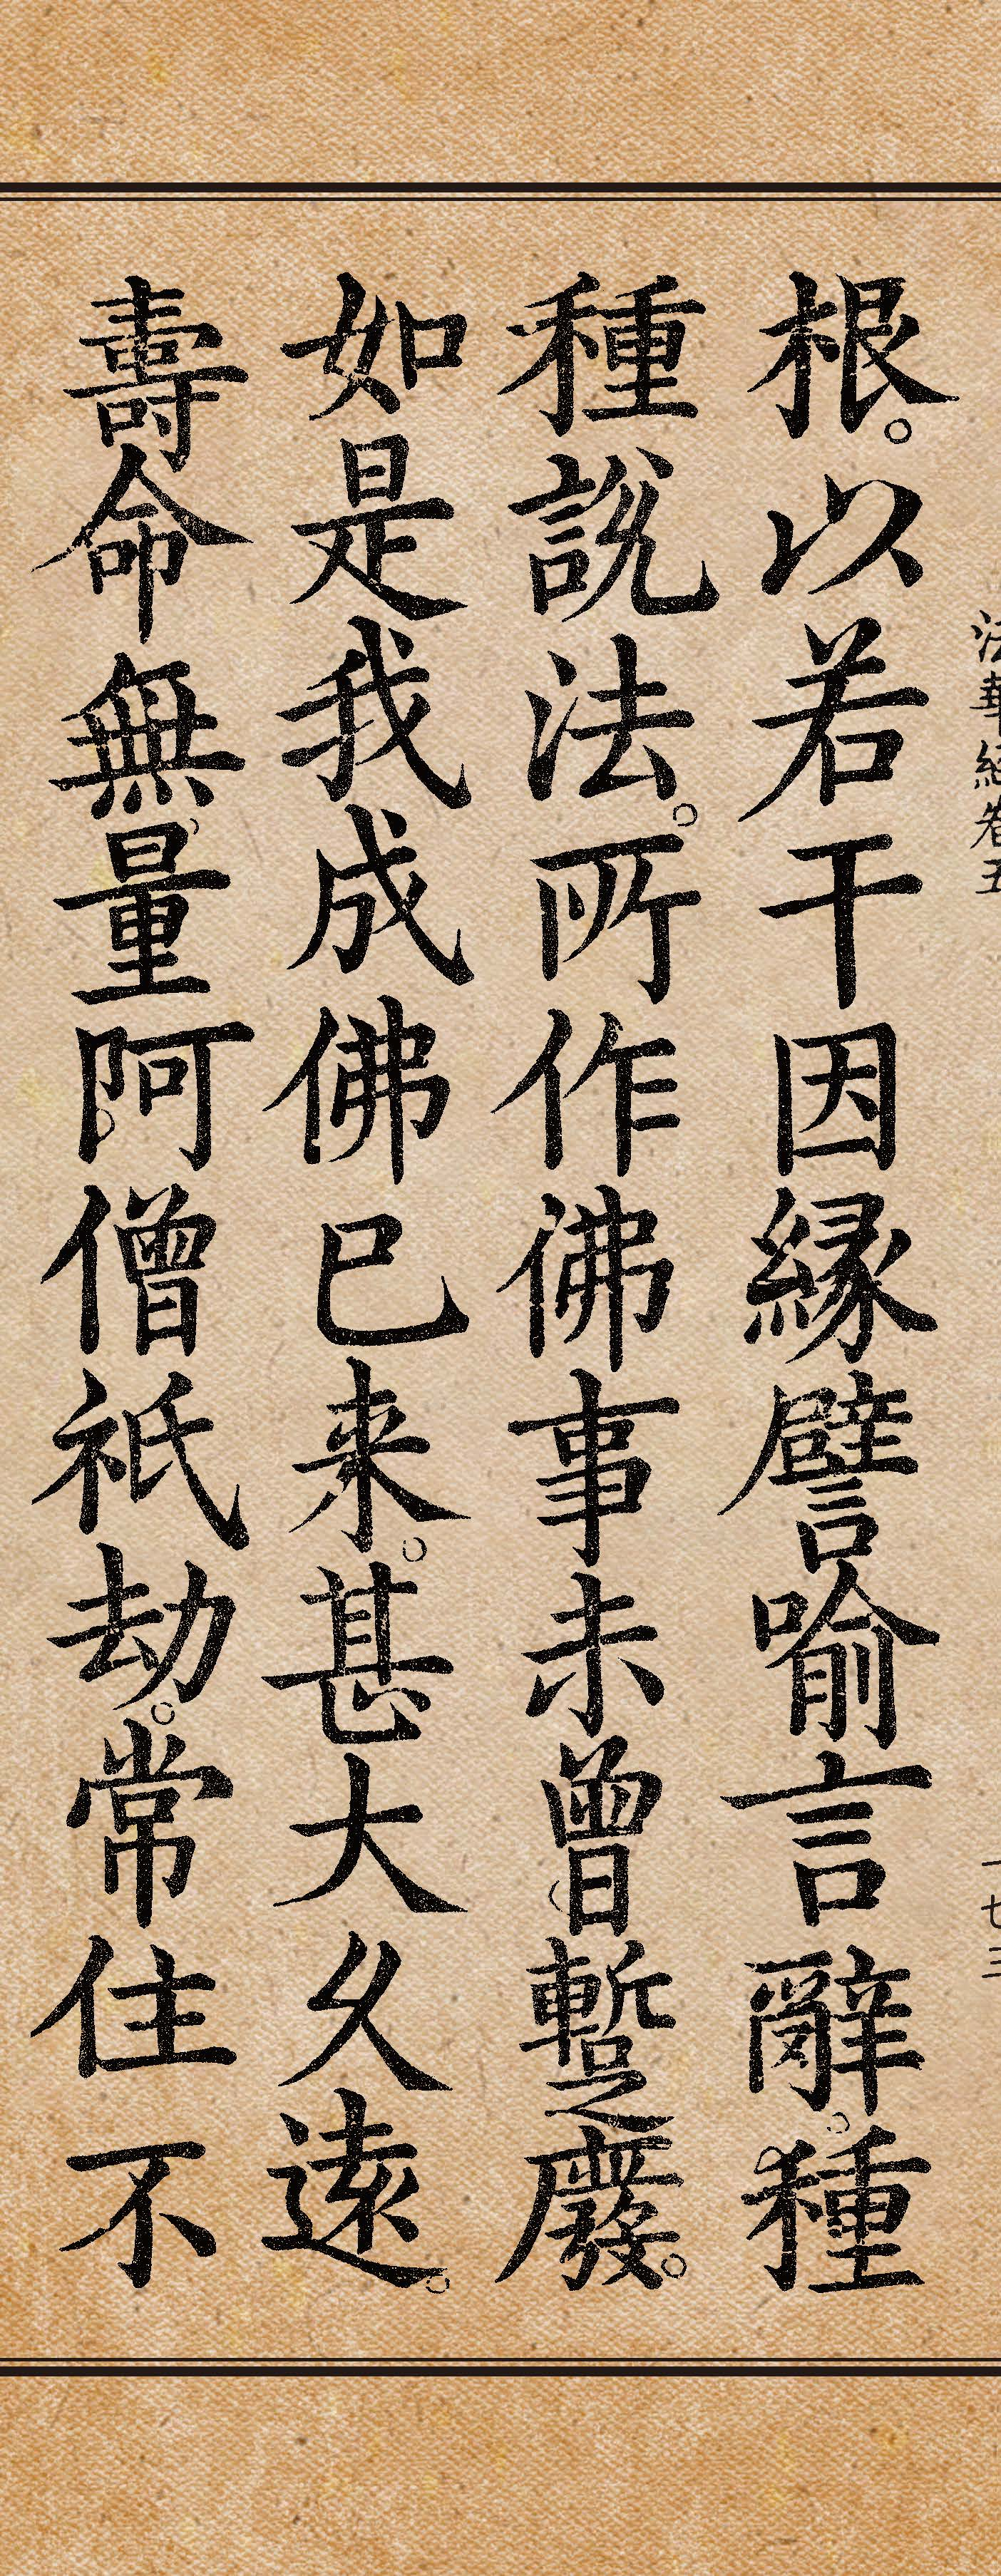 法華經卷五
一七三
根。以若干因縁譬喻言辭。種
種說法。所作佛事未曾暫廢。
如是我成佛已来。甚大久遠。
壽命無量阿僧祇劫。常住不